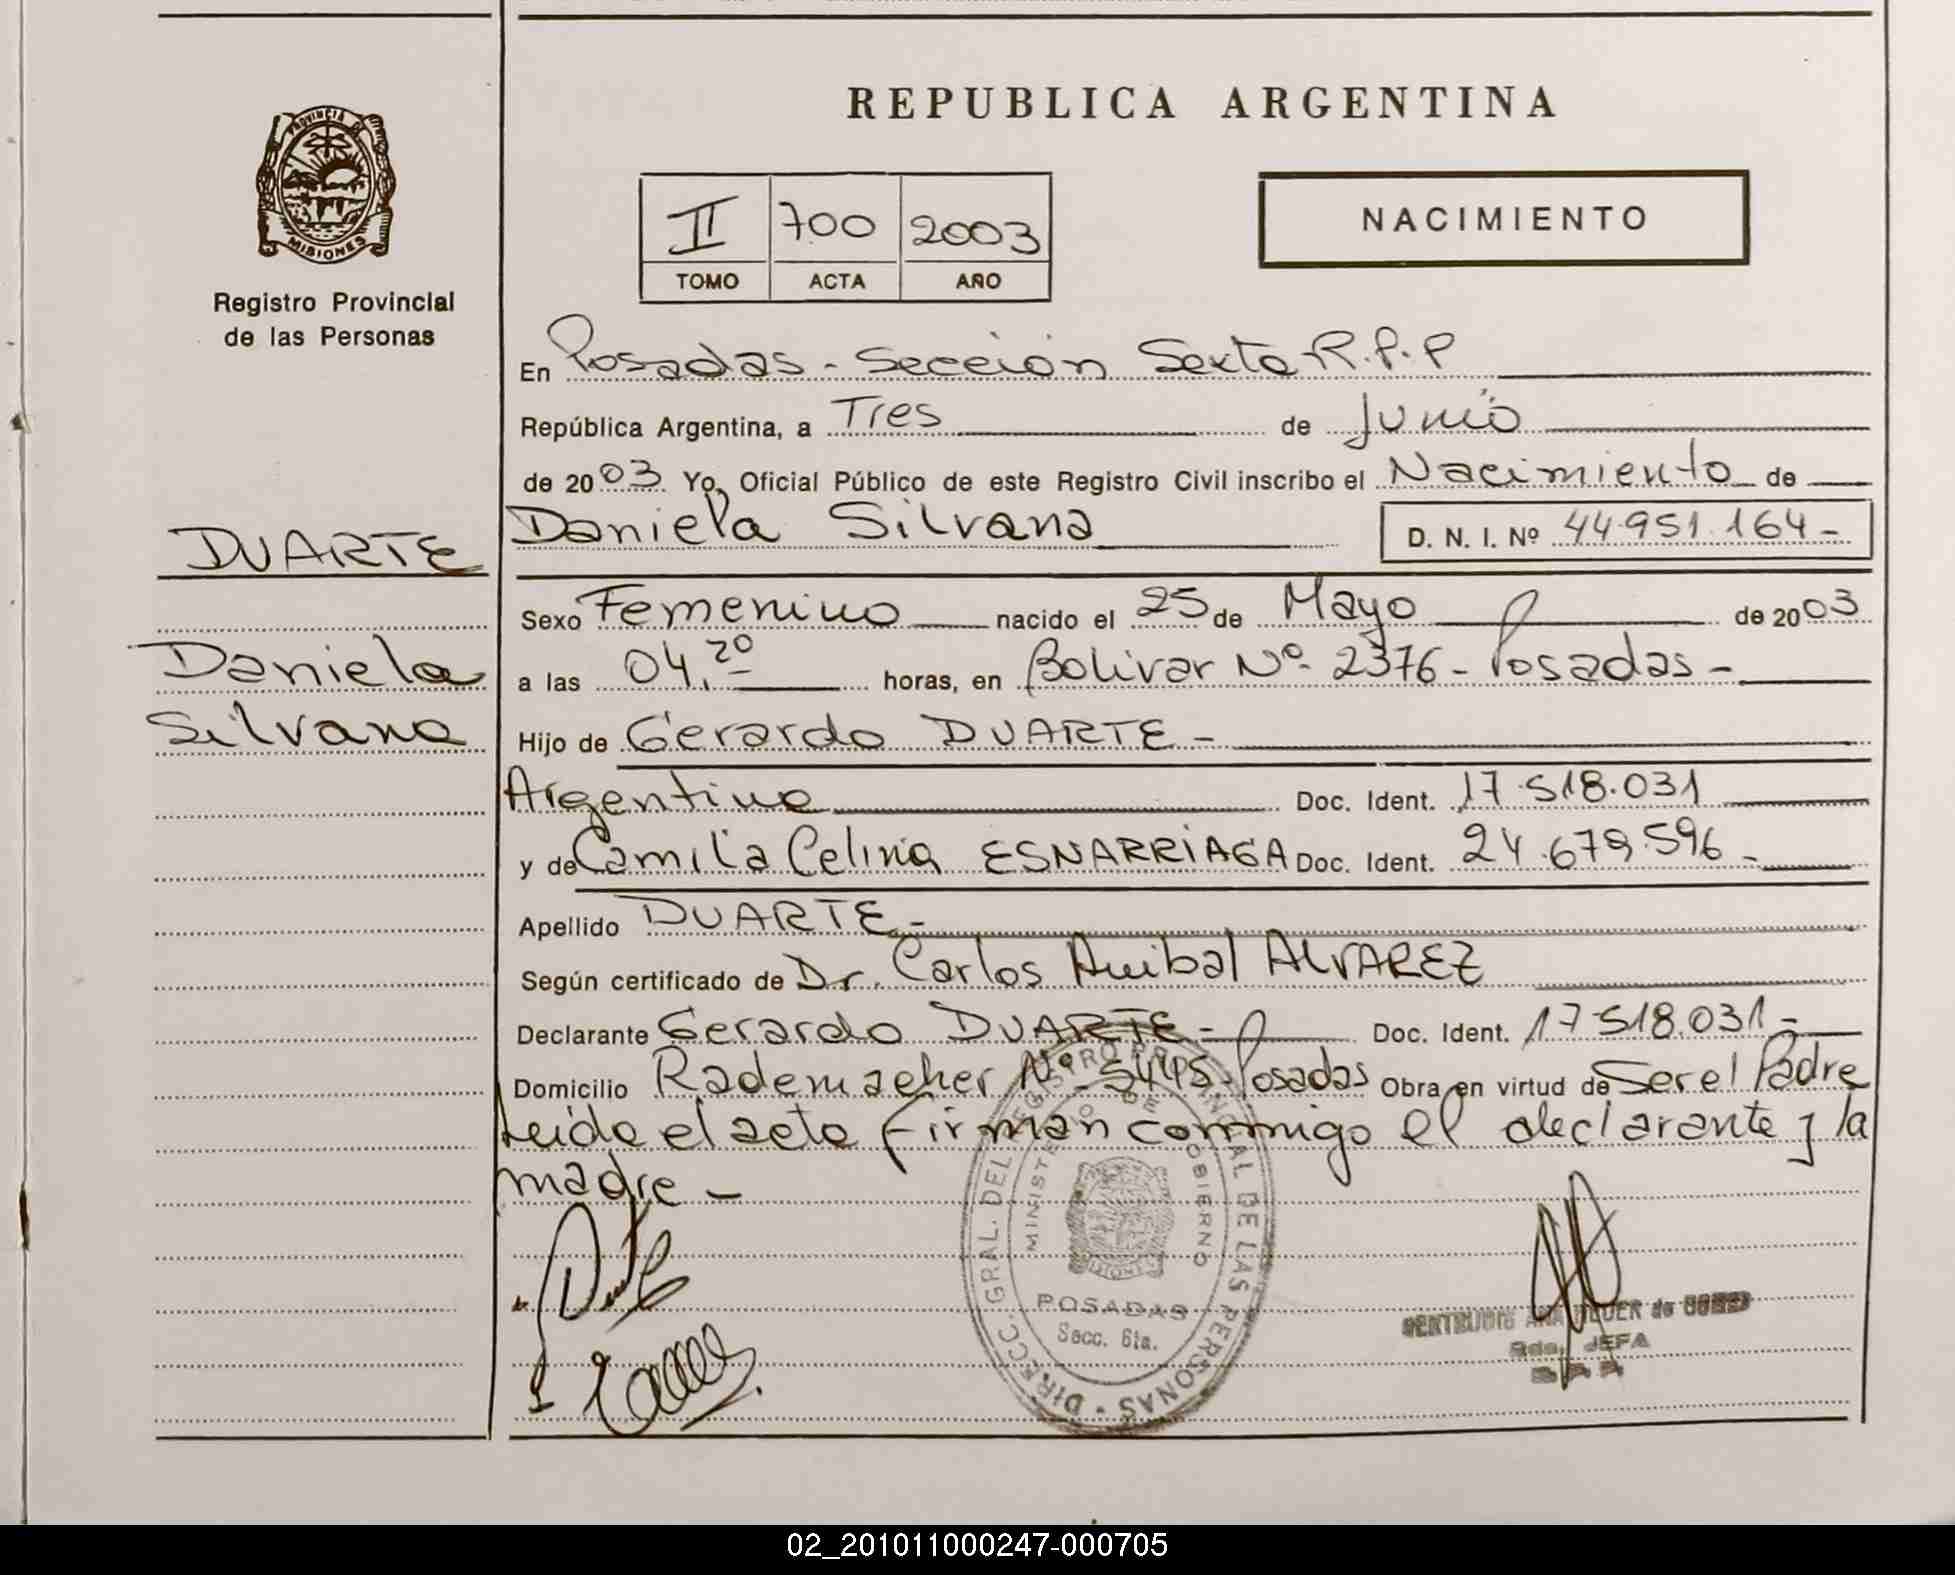 REPUBLICA ARGENTINA
PROVINCIA DE
MISIONES
Registro Provincial
de las Personas
II 700 2003
TOMO ACTA AÑO
NACIMIENTO
En Posadas - Sección Sexta R.P.P
República Argentina, a Tres de Junio
de 2003 Yo, Oficial Público de este Registro Civil inscribo el Nacimiento de
DUARTE
Daniela
Silvana
Daniela Silvana D. N. I. Nº 44.951.164 -
Sexo Femenino nacido el 25 de Mayo de 2003
a las 04,20 horas, en Bolivar Nº 2376 - Posadas -
Hijo de Gerardo DUARTE -
Argentino Doc. Ident. 17.518.031
y de Camila Celina ESNARRIAGA Doc. Ident. 24.679.596 -
Apellido DUARTE -
Según certificado de Dr. Carlos Anibal ALVAREZ
Declarante Gerardo DUARTE - Doc. Ident. 17.518.031 -
Domicilio Rademacher Nº 5445 - Posadas Obra en virtud de Ser el Padre
Leida el acta firman conmigo el declarante y la
madre -
DIRECC. GRAL. DEL REGISTRO PROVINCIAL DE LAS PERSONAS
MINISTERIO DE GOBIERNO
MISIONES
POSADAS
Secc. 6ta.
GERTRUDIS ANA de
JEFA
02_201011000247-000705